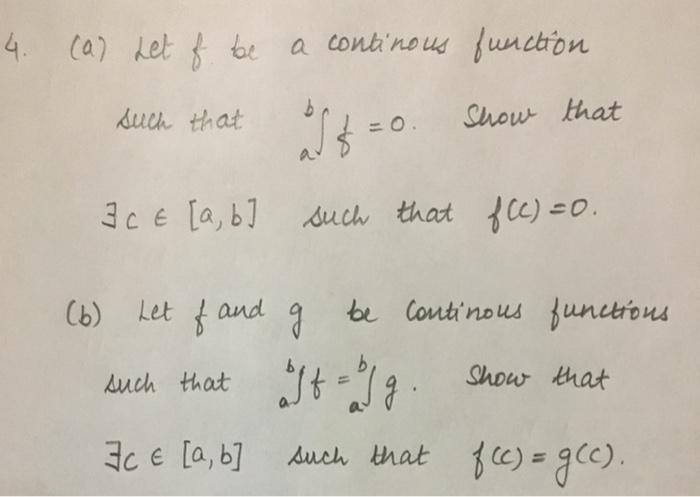 4. (a) Let f be a continous function
such that ₐᵇ∫ f = 0. Show that
∃ c ∈ [a, b] such that f(c) = 0.
(b) Let f and g be continous functions
such that ₐᵇ∫ f = ₐᵇ∫ g. Show that
∃ c ∈ [a, b] such that f(c) = g(c).